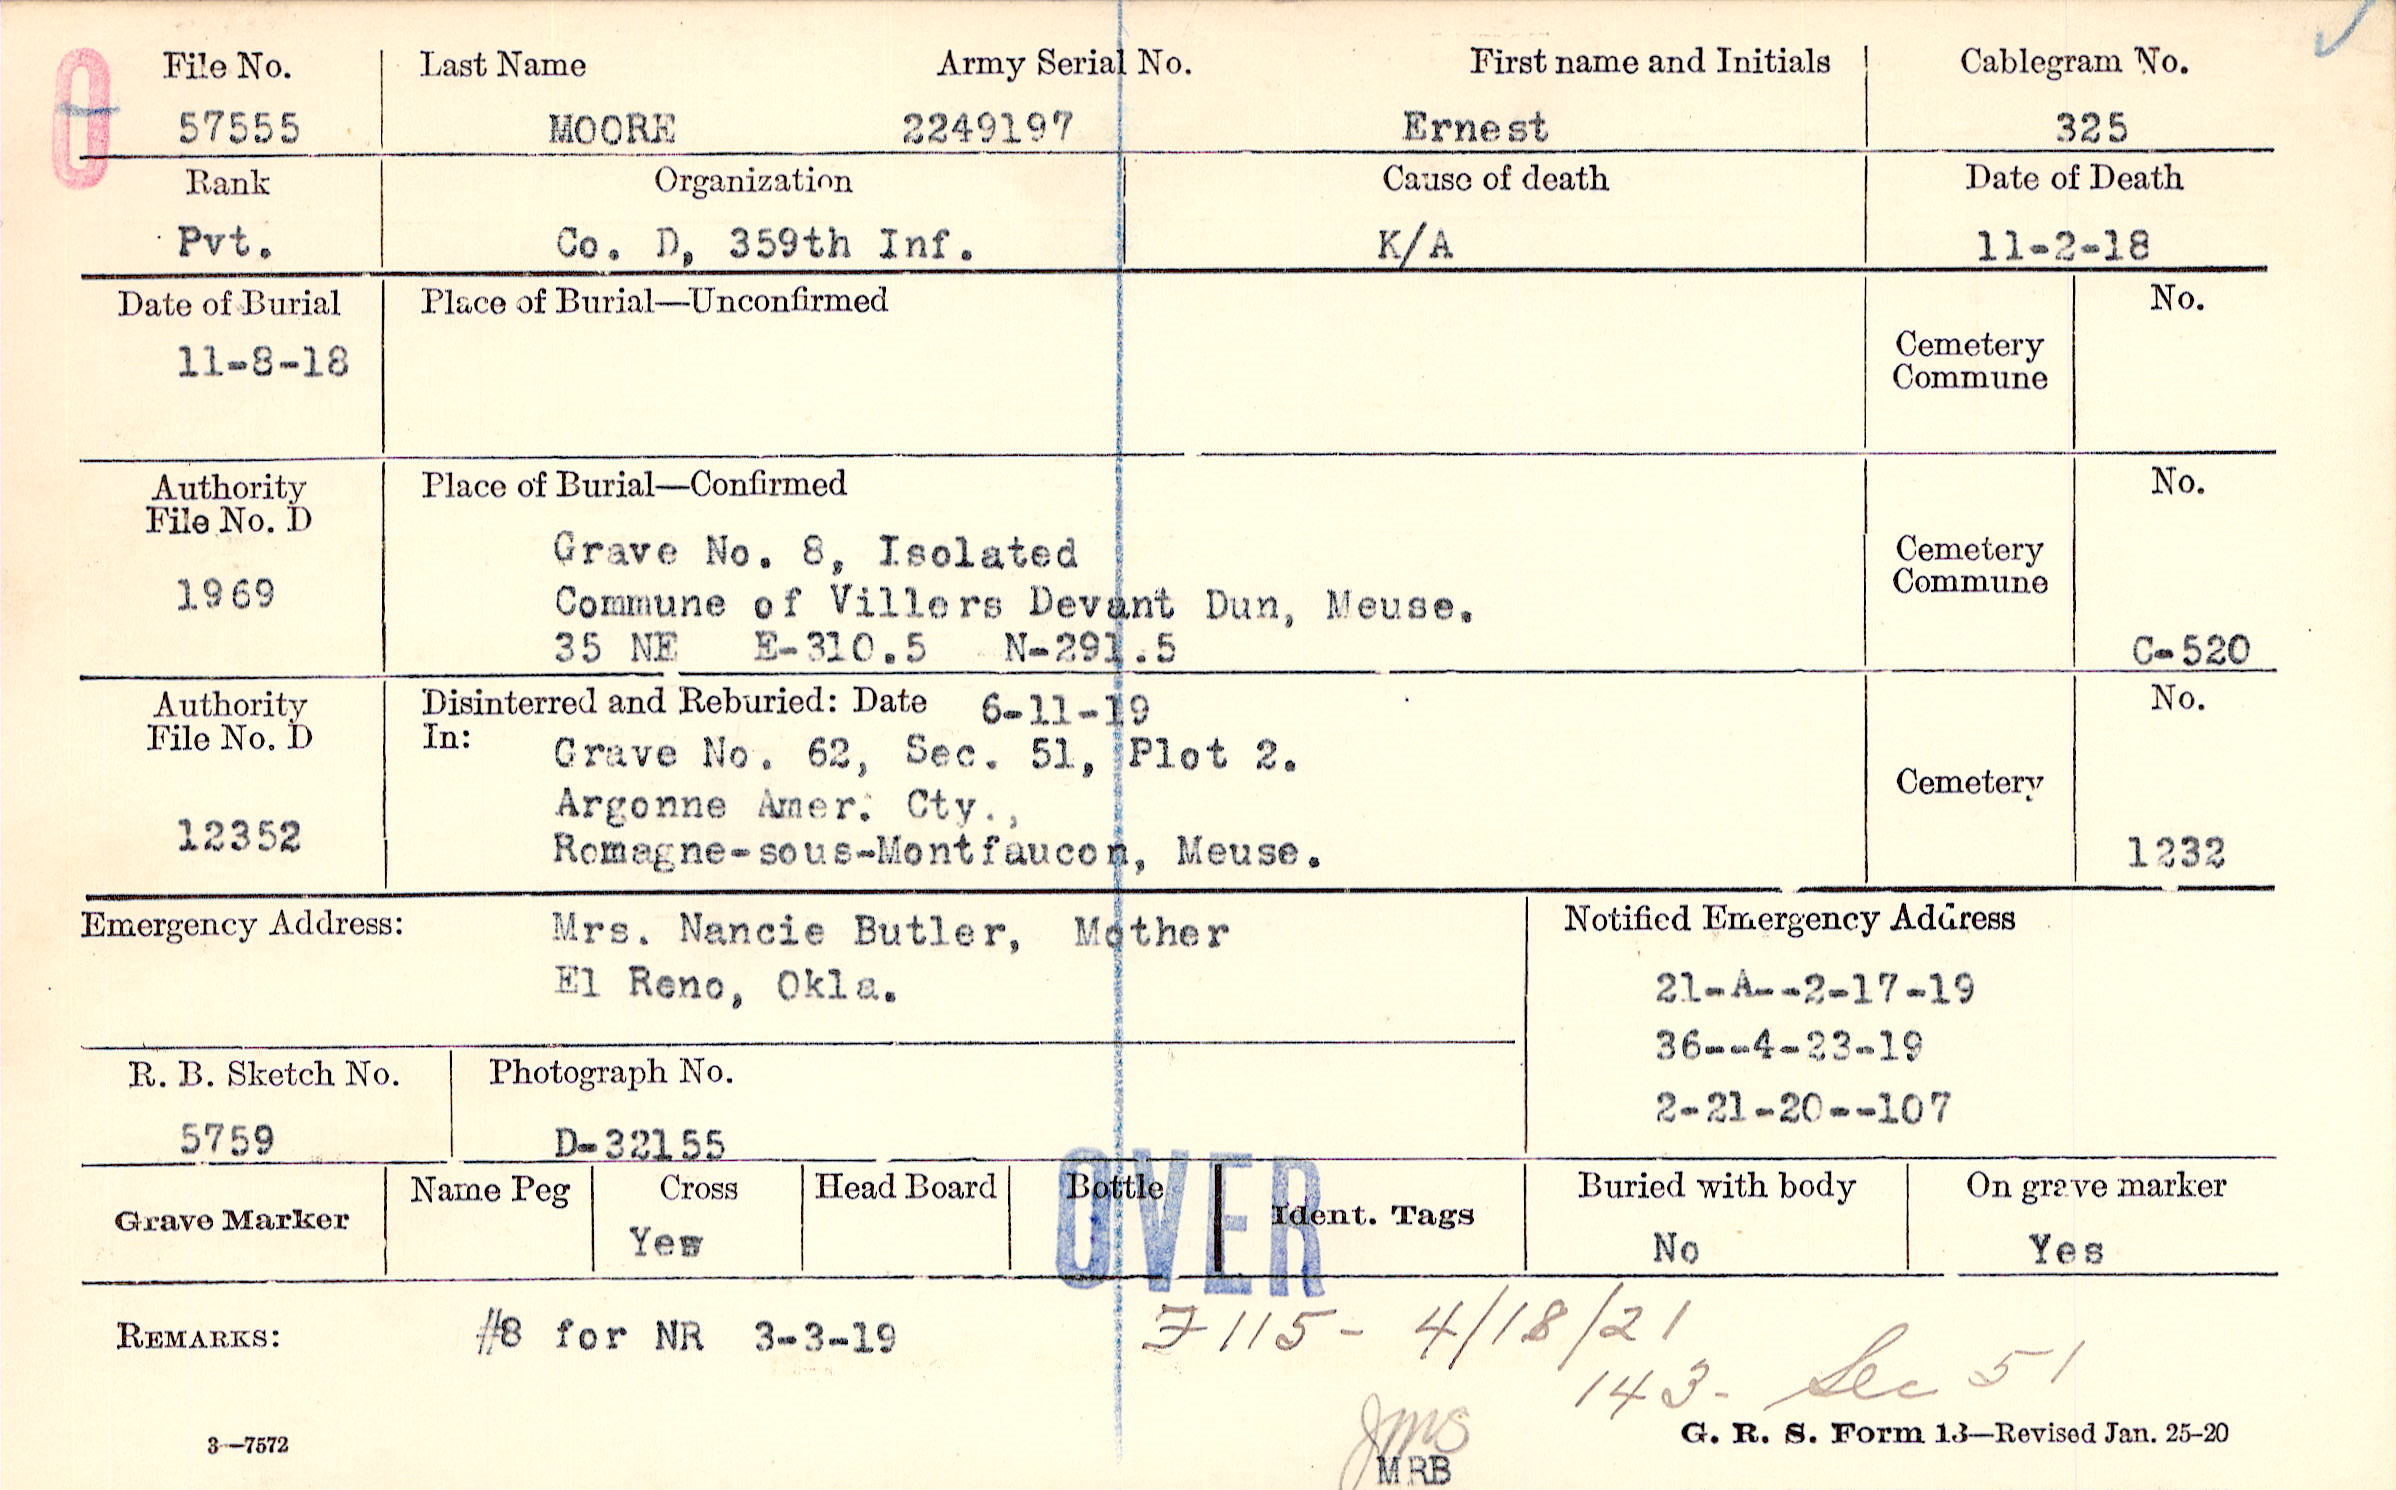 File No. Last Name Army Serial No. First name and Initials Cablegram No.
57555 MOORE 2249197 Ernest 325
Rank Organization Cause of death Date of Death
Pvt. Co. D, 359th Inf. K/A 11-2-18
Date of Burial Place of Burial—Unconfirmed No.
11-8-18
Cemetery
Commune
Authority
File No. D
Place of Burial—Confirmed No.
1969
Grave No. 8, Isolated
Commune of Villers Devant Dun, Meuse.
35 NE E-310.5 N-291.5
Cemetery
Commune
C-520
Authority
File No. D
Disinterred and Reburied: Date 6-11-19 No.
In: Grave No. 62, Sec. 51, Plot 2.
Argonne Amer. Cty.,
Romagne-sous-Montfaucon, Meuse.
12352
Cemetery
1232
Emergency Address: Mrs. Nancie Butler, Mother
El Reno, Okla.
Notified Emergency Address
21-A--2-17-19
36--4-23-19
2-21-20--107
R. B. Sketch No. Photograph No.
5759 D-32155
Grave Marker Name Peg Cross Head Board Bottle Ident. Tags Buried with body On grave marker
Yes No Yes
OVER
REMARKS: #8 for NR 3-3-19 F 115- 4/18/21
143- Sec 51
JMS
MRB
3—7572 G. R. S. Form 13—Revised Jan. 25-20